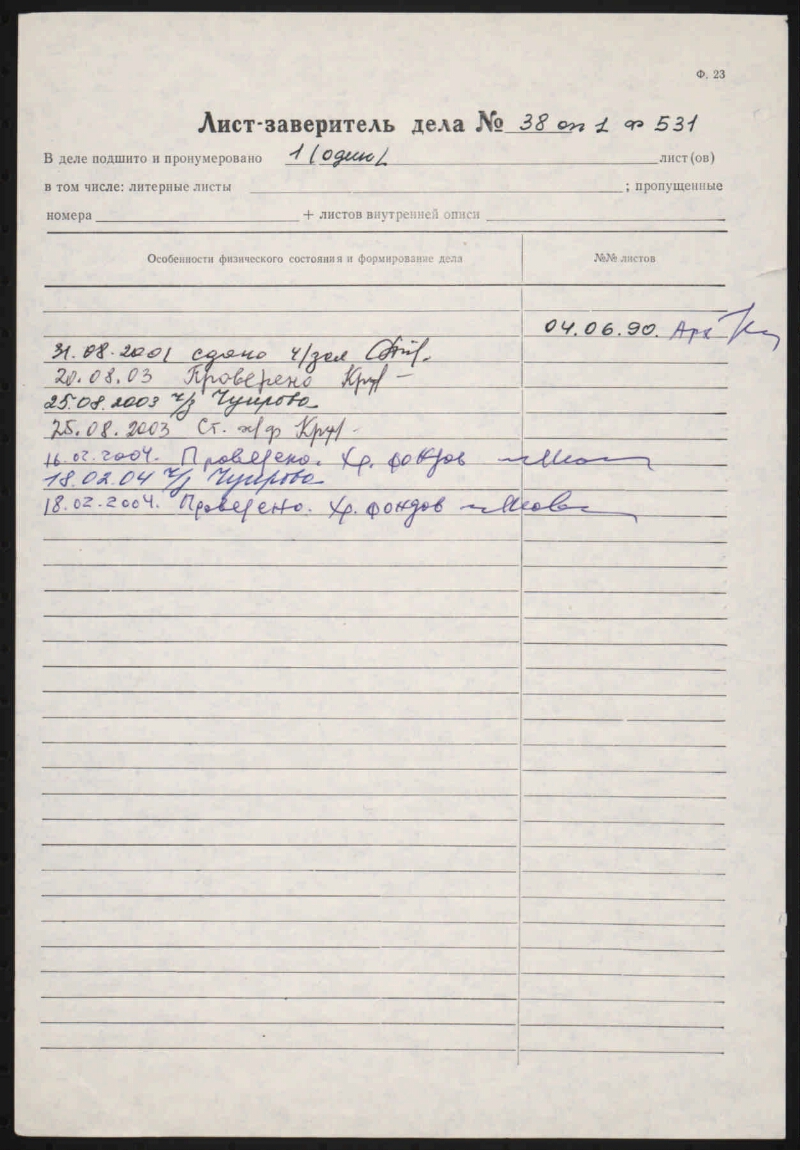 Ф. 23
Лист-заверитель дела № 38 оп 1 ф 531
В деле подшито и пронумеровано 1 (один) лист(ов)
в том числе: литерные листы ; пропущенные
номера + листов внутренней описи
Особенности физического состояния и формирование дела №№ листов
04.06.90. Арх
31.08.2001 сдано ч/зал
20.08.03 Проверено
25.08.2003 ч/з Чупрова
25.08.2003 Ст. хр/ф
16.02.2004. Проверено. Хр. фондов
18.02.04 ч/з Чупрова
18.02.2004. Проверено. Хр. фондов